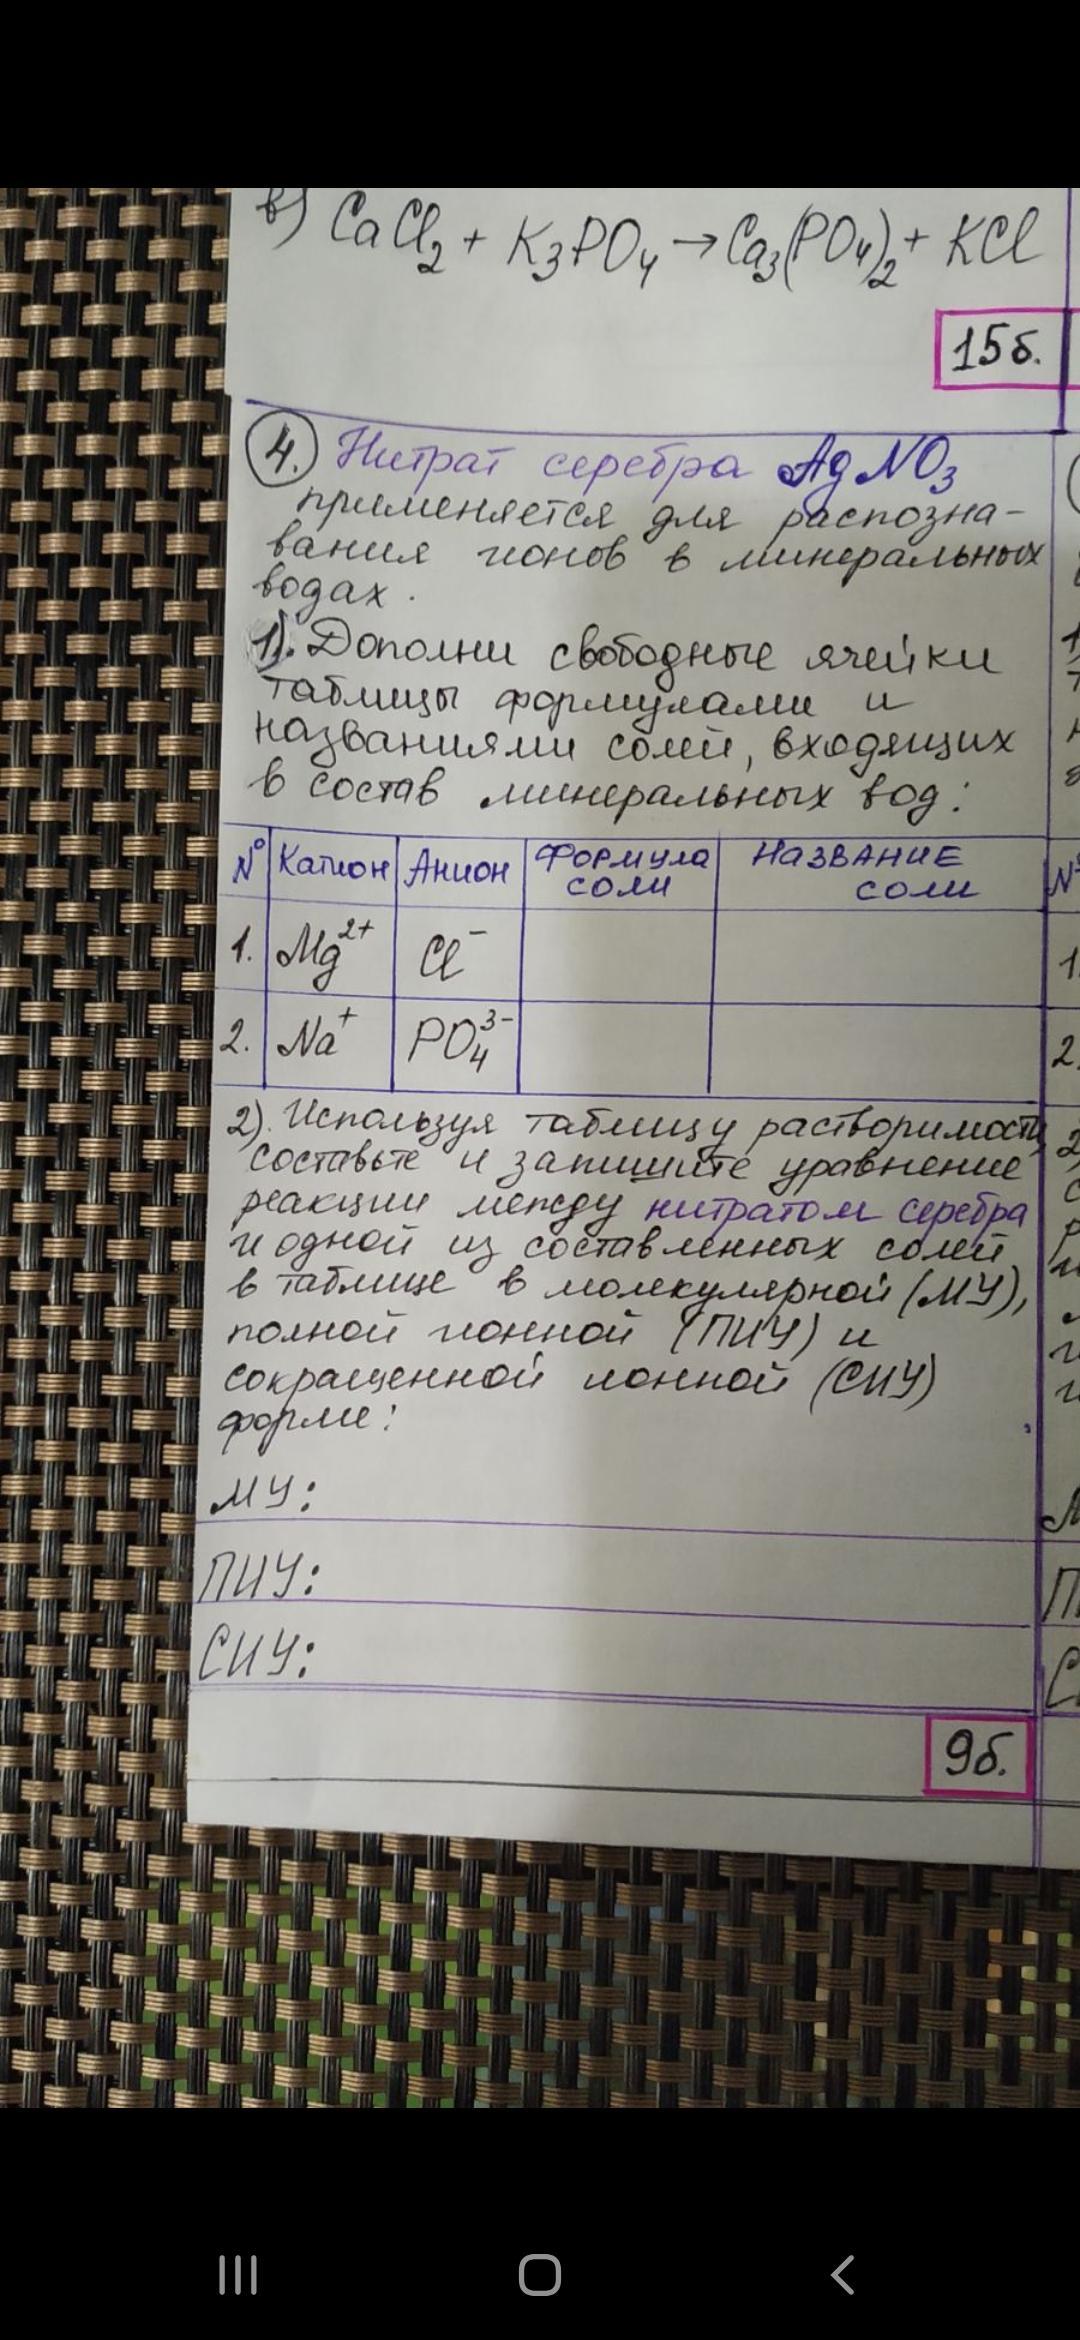 в) CaCl₂ + K₃PO₄ → Ca₃(PO₄)₂ + KCl
15б.
4. Нитрат серебра AgNO₃
применяется для распозна-
вания ионов в минеральных
водах.
1). Дополни свободные ячейки
таблицы формулами и
названиями солей, входящих
в состав минеральных вод:
№ Катион Анион Формула соли Название соли
1. Mg²⁺ Cl⁻
2. Na⁺ PO₄³⁻
2). Используя таблицу растворимости,
составьте и запишите уравнение
реакции между нитратом серебра
и одной из составленных солей
в таблице в молекулярной (МУ),
полной ионной (ПИУ) и
сокращенной ионной (СИУ)
форме:
МУ:
ПИУ:
СИУ:
9б.